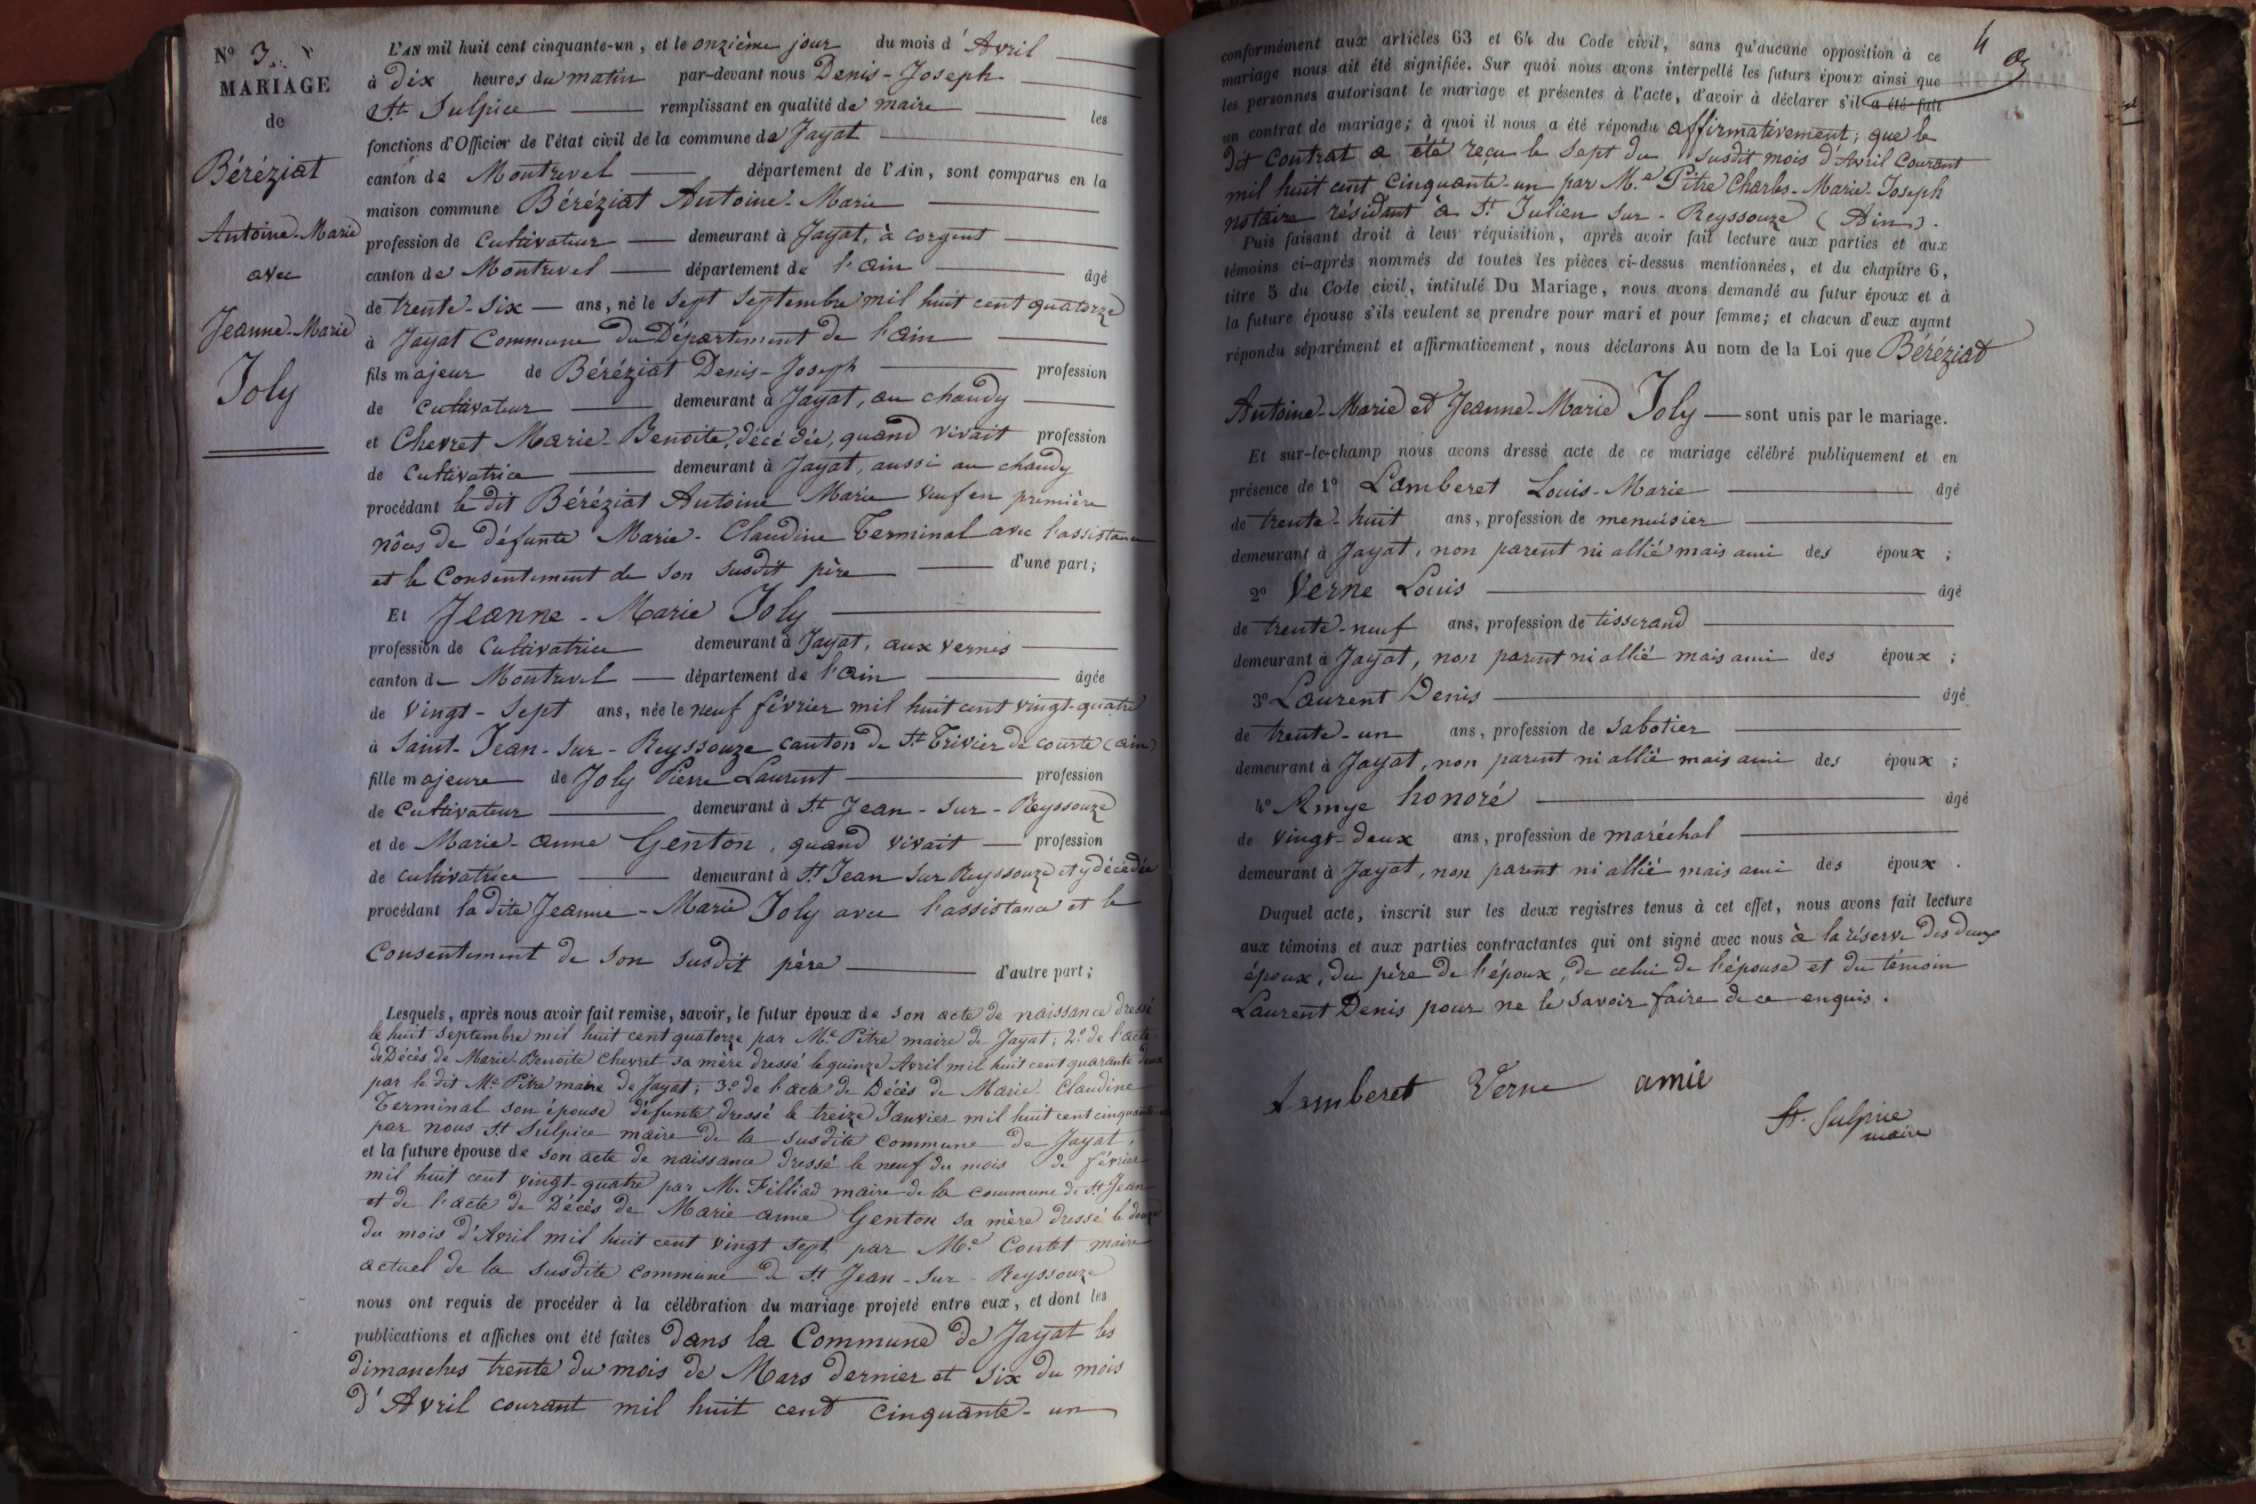 Nº 3.
MARIAGE
de
Béréziat
Antoine-Marie
avec
Jeanne-Marie
Joly
L'AN mil huit cent cinquante-un, et le onzième jour du mois d'Avril
à Dix heures du matin par-devant nous Denis-Joseph
St Sulpice remplissant en qualité de maire les
fonctions d'Officier de l'état civil de la commune de Jayat
canton de Montrevel département de l'Ain, sont comparus en la
maison commune Béréziat Antoine-Marie
profession de Cultivateur demeurant à Jayat, à corgent
canton de Montrevel département de l'ain âgé
de trente-six ans, né le sept septembre mil huit cent quatorze
à Jayat Commune du Département de l'ain
fils majeur de Béréziat Denis-Joseph profession
de cultivateur demeurant à Jayat, au chaudy
et Chevret Marie-Benoite, décédée, quand vivait profession
de Cultivatrice demeurant à Jayat, aussi au chaudy
procédant le dit Béréziat Antoine Marie veuf en première
nôces de défunte Marie-Claudine Terminal avec l'assistance
et le Consentement de son susdit père d'une part;
Et Jeanne-Marie Joly
profession de Cultivatrice demeurant à Jayat, aux vernes
canton de Montrevel département de l'ain âgée
de vingt-sept ans, née le neuf février mil huit cent vingt-quatre
à Saint-Jean-sur-Reyssouze canton de St Trivier de courte (ain)
fille majeure de Joly Pierre Laurent profession
de cultivateur demeurant à St Jean-sur-Reyssouze
et de Marie-anne Genton, quand vivait profession
de cultivatrice demeurant à St Jean sur Reyssouze et y décédée
procédant la dite Jeanne-Marie Joly avec l'assistance et le
Consentement de son susdit père d'autre part;
Lesquels, après nous avoir fait remise, savoir, le futur époux de son acte de naissance dressé
le huit septembre mil huit cent quatorze par Me Pitre maire de Jayat; 2º de l'acte
de Décès de Marie-Benoite Chevret sa mère dressé le quinze Avril mil huit cent quarante deux
par le dit Me Pitre maire de Jayat; 3º de l'acte de Décès de Marie-Claudine
Terminal son épouse défunte dressé le treize Janvier mil huit cent cinquante
par nous St Sulpice maire de la susdite commune de Jayat,
et la future épouse de son acte de naissance dressé le neuf du mois de février
mil huit cent vingt-quatre par M. Filliad maire de la commune de St Jean
et de l'acte de Décès de Marie anne Genton sa mère dressé le douze
du mois d'Avril mil huit cent vingt sept par Me Coutet maire
actuel de la susdite commune de St Jean-sur-Reyssouze
nous ont requis de procéder à la célébration du mariage projeté entre eux, et dont les
publications et affiches ont été faites dans la Commune de Jayat les
dimanches trente du mois de Mars dernier et six du mois
d'Avril courant mil huit cent cinquante-un
4
conformément aux articles 63 et 64 du Code civil, sans qu'aucune opposition à ce
mariage nous ait été signifiée. Sur quoi nous avons interpellé les futurs époux ainsi que
les personnes autorisant le mariage et présentes à l'acte, d'avoir à déclarer s'il a été fait
un contrat de mariage; à quoi il nous a été répondu affirmativement; que le
dit contrat a été reçu le sept du susdit mois d'Avril courant
mil huit cent cinquante-un par M.e Pitre Charles-Marie-Joseph
notaire résidant à St Julien sur-Reyssouze (Ain).
Puis faisant droit à leur réquisition, après avoir fait lecture aux parties et aux
témoins ci-après nommés de toutes les pièces ci-dessus mentionnées, et du chapitre 6,
titre 5 du Code civil, intitulé Du Mariage, nous avons demandé au futur époux et à
la future épouse s'ils veulent se prendre pour mari et pour femme; et chacun d'eux ayant
répondu séparément et affirmativement, nous déclarons Au nom de la Loi que Béréziat
Antoine-Marie et Jeanne-Marie Joly sont unis par le mariage.
Et sur-le-champ nous avons dressé acte de ce mariage célébré publiquement et en
présence de 1º Lamberet Louis-Marie âgé
de trente-huit ans, profession de menuisier
demeurant à Jayat, non parent ni allié mais ami des époux;
2º Verne Louis âgé
de trente-neuf ans, profession de tisserand
demeurant à Jayat, non parent ni allié mais ami des époux;
3º Laurent Denis âgé
de trente-un ans, profession de sabotier
demeurant à Jayat, non parent ni allié mais ami des époux;
4º Amye honoré âgé
de vingt-deux ans, profession de maréchal
demeurant à Jayat, non parent ni allié mais ami des époux.
Duquel acte, inscrit sur les deux registres tenus à cet effet, nous avons fait lecture
aux témoins et aux parties contractantes qui ont signé avec nous à la réserve des deux
époux, du père de l'époux, de celui de l'épouse et du témoin
Laurent Denis pour ne le savoir faire de ce enquis.
Lamberet Verne amie
St. Sulpice
maire